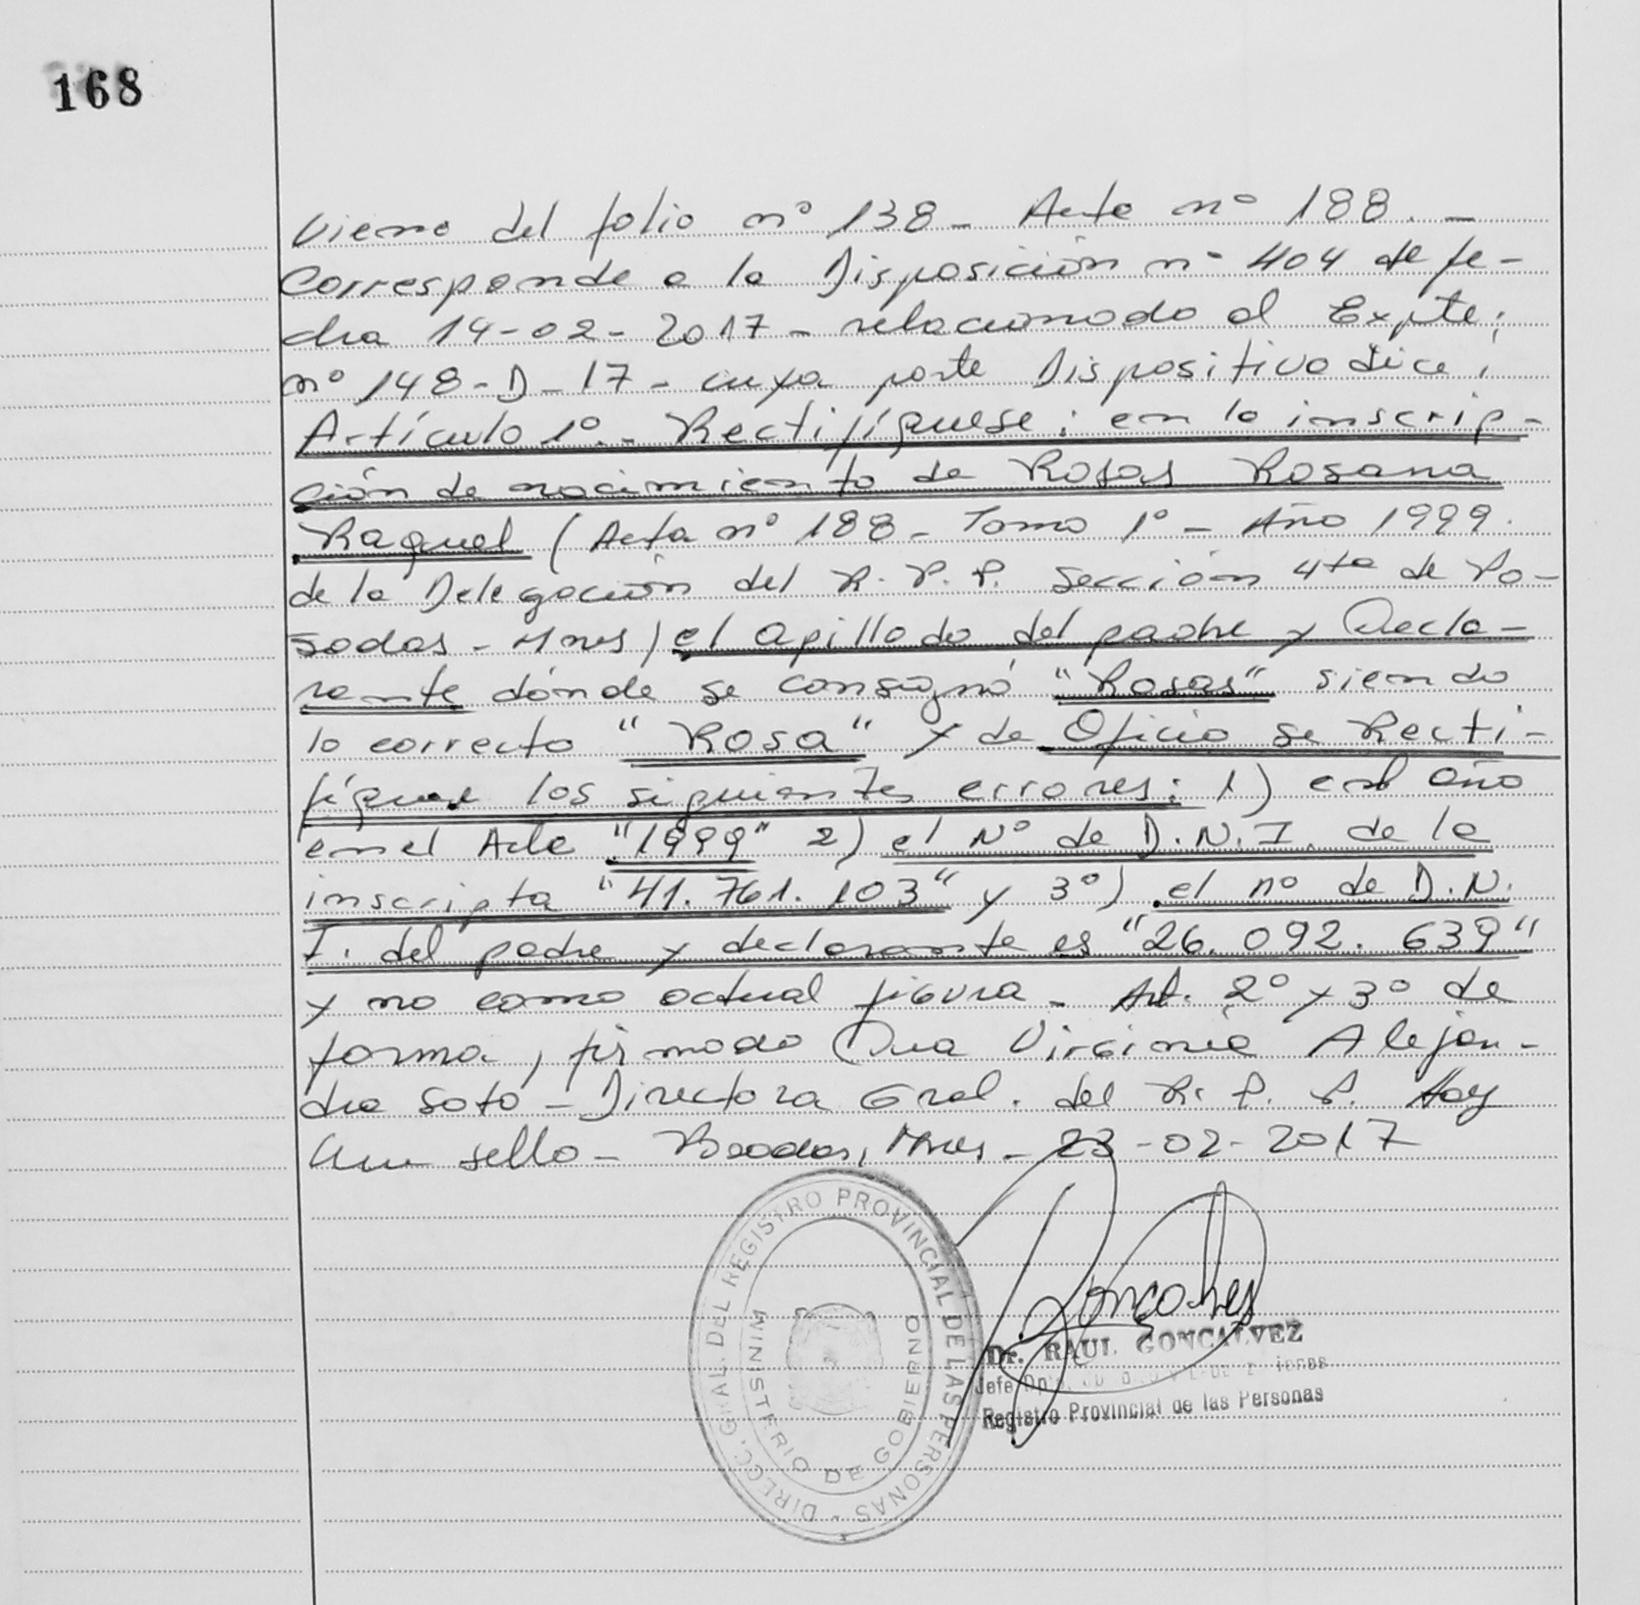 168
Viene del folio nº 138 - Acta nº 188. -
Corresponde a la Disposición nº 404 de fe-
cha 14-02-2017 - relacionado al Expte;
nº 148-D-17 - cuya parte Dispositiva dice;
Artículo 1º.- Rectifíquese: en la inscrip-
ción de nacimiento de Rosas Rosana
Raquel (Acta nº 188 - Tomo 1º - Año 1999.
de la Delegación del R. P. P. Sección 4ta de Po-
sadas - Mnes) el apillado del padre y Decla-
rante dónde se consignó "Rosas" siendo
lo correcto "Rosa" y de Oficio se Recti-
fique los siguientes errores: 1) el año
en el Acta "1999" 2) el Nº de D.N.I. de la
inscripta "41.761.103" y 3º) el nº de D.N.
I. del padre y declarante es "26.092.639"
y no como actual figura - Art. 2º y 3º de
forma, firmado Dra Virginia Alejan-
dra Soto - Directora Gral. del R. P. P. Hay
un sello - Posadas, Mnes - 23-02-2017
DIRECC. GRAL. DEL REGISTRO PROVINCIAL DE LAS PERSONAS
MINISTERIO DE GOBIERNO
Dr. RAUL GONCALVEZ
Jefe Dpto.
Registro Provincial de las Personas